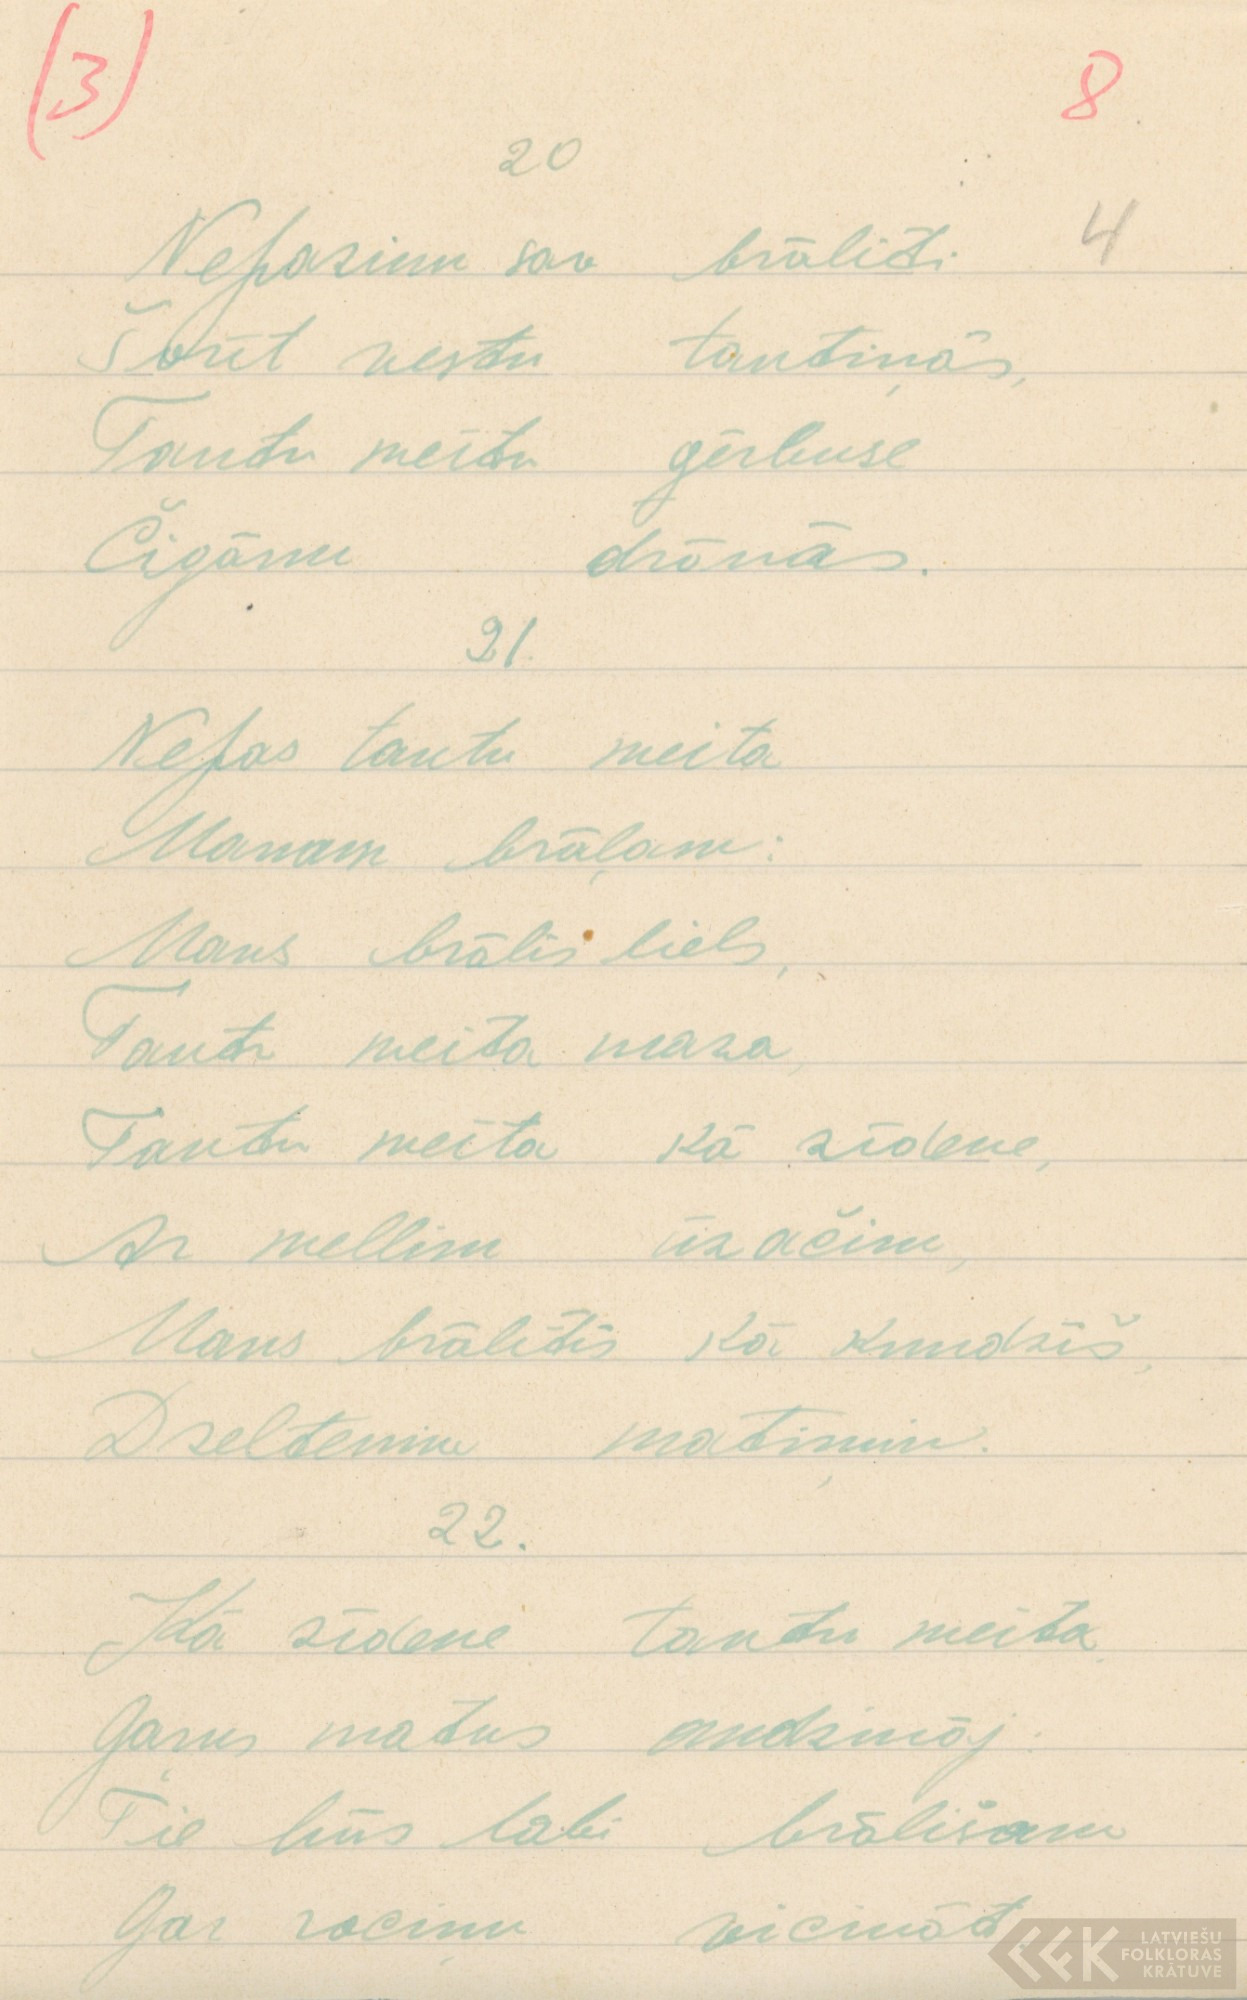 (3)
8
20
4
Nepazinu sav brālīti
Šorīt vestu tautiņās,
Tautu meitu gērbuse
Čigānu drānās.
21.
Nepas tautu meita
Manam brāļam:
Mans brālis liels,
Tautu meita maza,
Tautu meita kā zīdene,
Ar mellim ūzačim,
Mans brālītis kā kundziš,
Dzeltenim matiņim.
22.
Kā zīdene tautu meita
Gaŗus matus audzinaj.
Tie būs labi brālišam
Gar rociņu vicināt.
LATVIEŠU
FOLKLORAS
KRĀTUVE